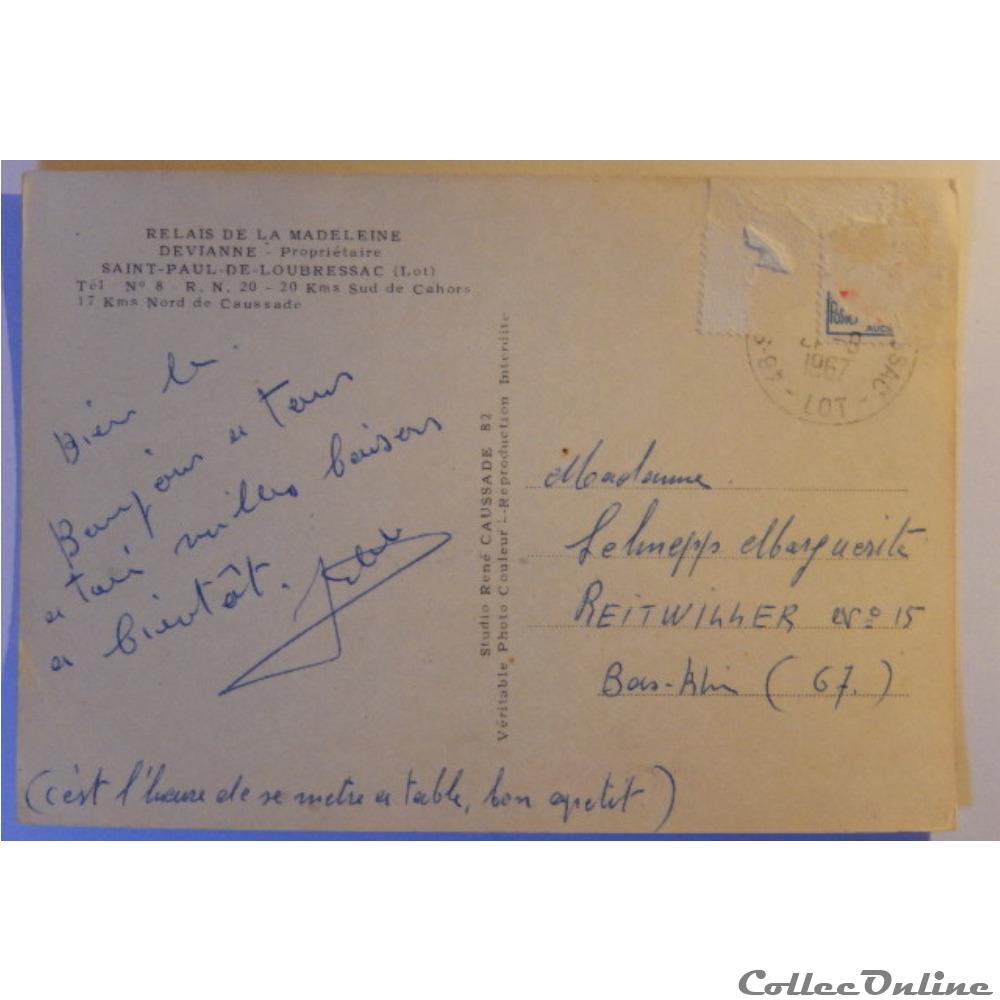 RELAIS DE LA MADELEINE
DEVIANNE - Propriétaire
SAINT-PAUL-DE-LOUBRESSAC (Lot)
Tél N° 8 - R. N. 20 - 20 Kms Sud de Cahors
17 Kms Nord de Caussade
Bien la.
Bonjour a tous
a toi milles baisers
a bientôt.
(c'est l'heure de se metre a table, bon apetit)
Studio René CAUSSADE 82
Véritable Photo Couleur - Reproduction Interdite
SSAC - LOT
1967
AUCH
Madame
Schnepp Marguerite
REITWILLER N° 15
Bas-Rhin (67.)
CollecOnline